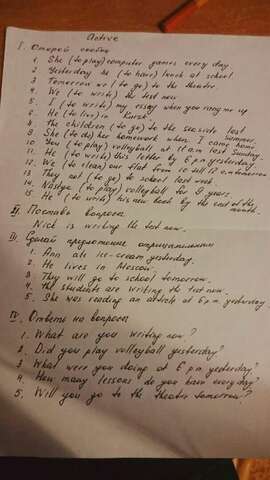 Active
I. Открой скобки
1. She (to play) computer games every day
2. Yesterday he (to have) lunch at school
3. Tomorrow we (to go) to the theatre
4. We (to write) the test now
5. I (to write) my essay when you rang me up
6. He (to live) in Kursk.
7. The children (to go) to the seaside last summer
8. She (to do) her homework when I came home
10. You (to play) volleyball at 11 a.m. last Sunday.
11. He (to write) this letter by 6 p.m. yesterday
12. We (to clean) our flat from 10 till 12 a.m. tomorrow
13. They not (to go) to school last week.
14. Nastya (to play) volleyball for 9 years
15. He (to write) his new book by the end of the month.
II. Поставь вопросы
Nick is writing the test now.
III. Сделай предложение отрицательными
1. Ann ate ice-cream yesterday.
2. He lives in Moscow.
3. They will go to school tomorrow.
4. The students are writing the test now
5. She was reading an article at 6 p.m. yesterday
IV. Ответь на вопросы
1. What are you writing now?
2. Did you play volleyball yesterday?
3. What were you doing at 6 p.m. yesterday?
4. How many lessons do you have every day?
5. Will you go to the theater tomorrow?